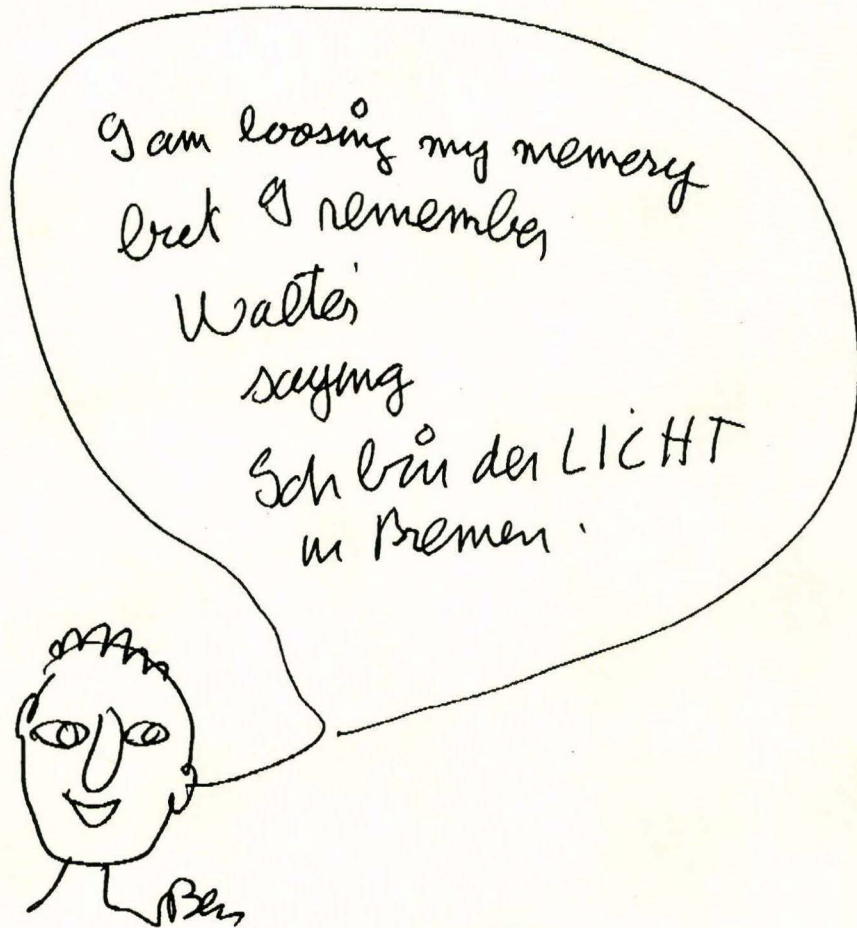 I am loosing my memery
but I remember
Walter
saying
Ich bin der LICHT
in Bremen.
Ben